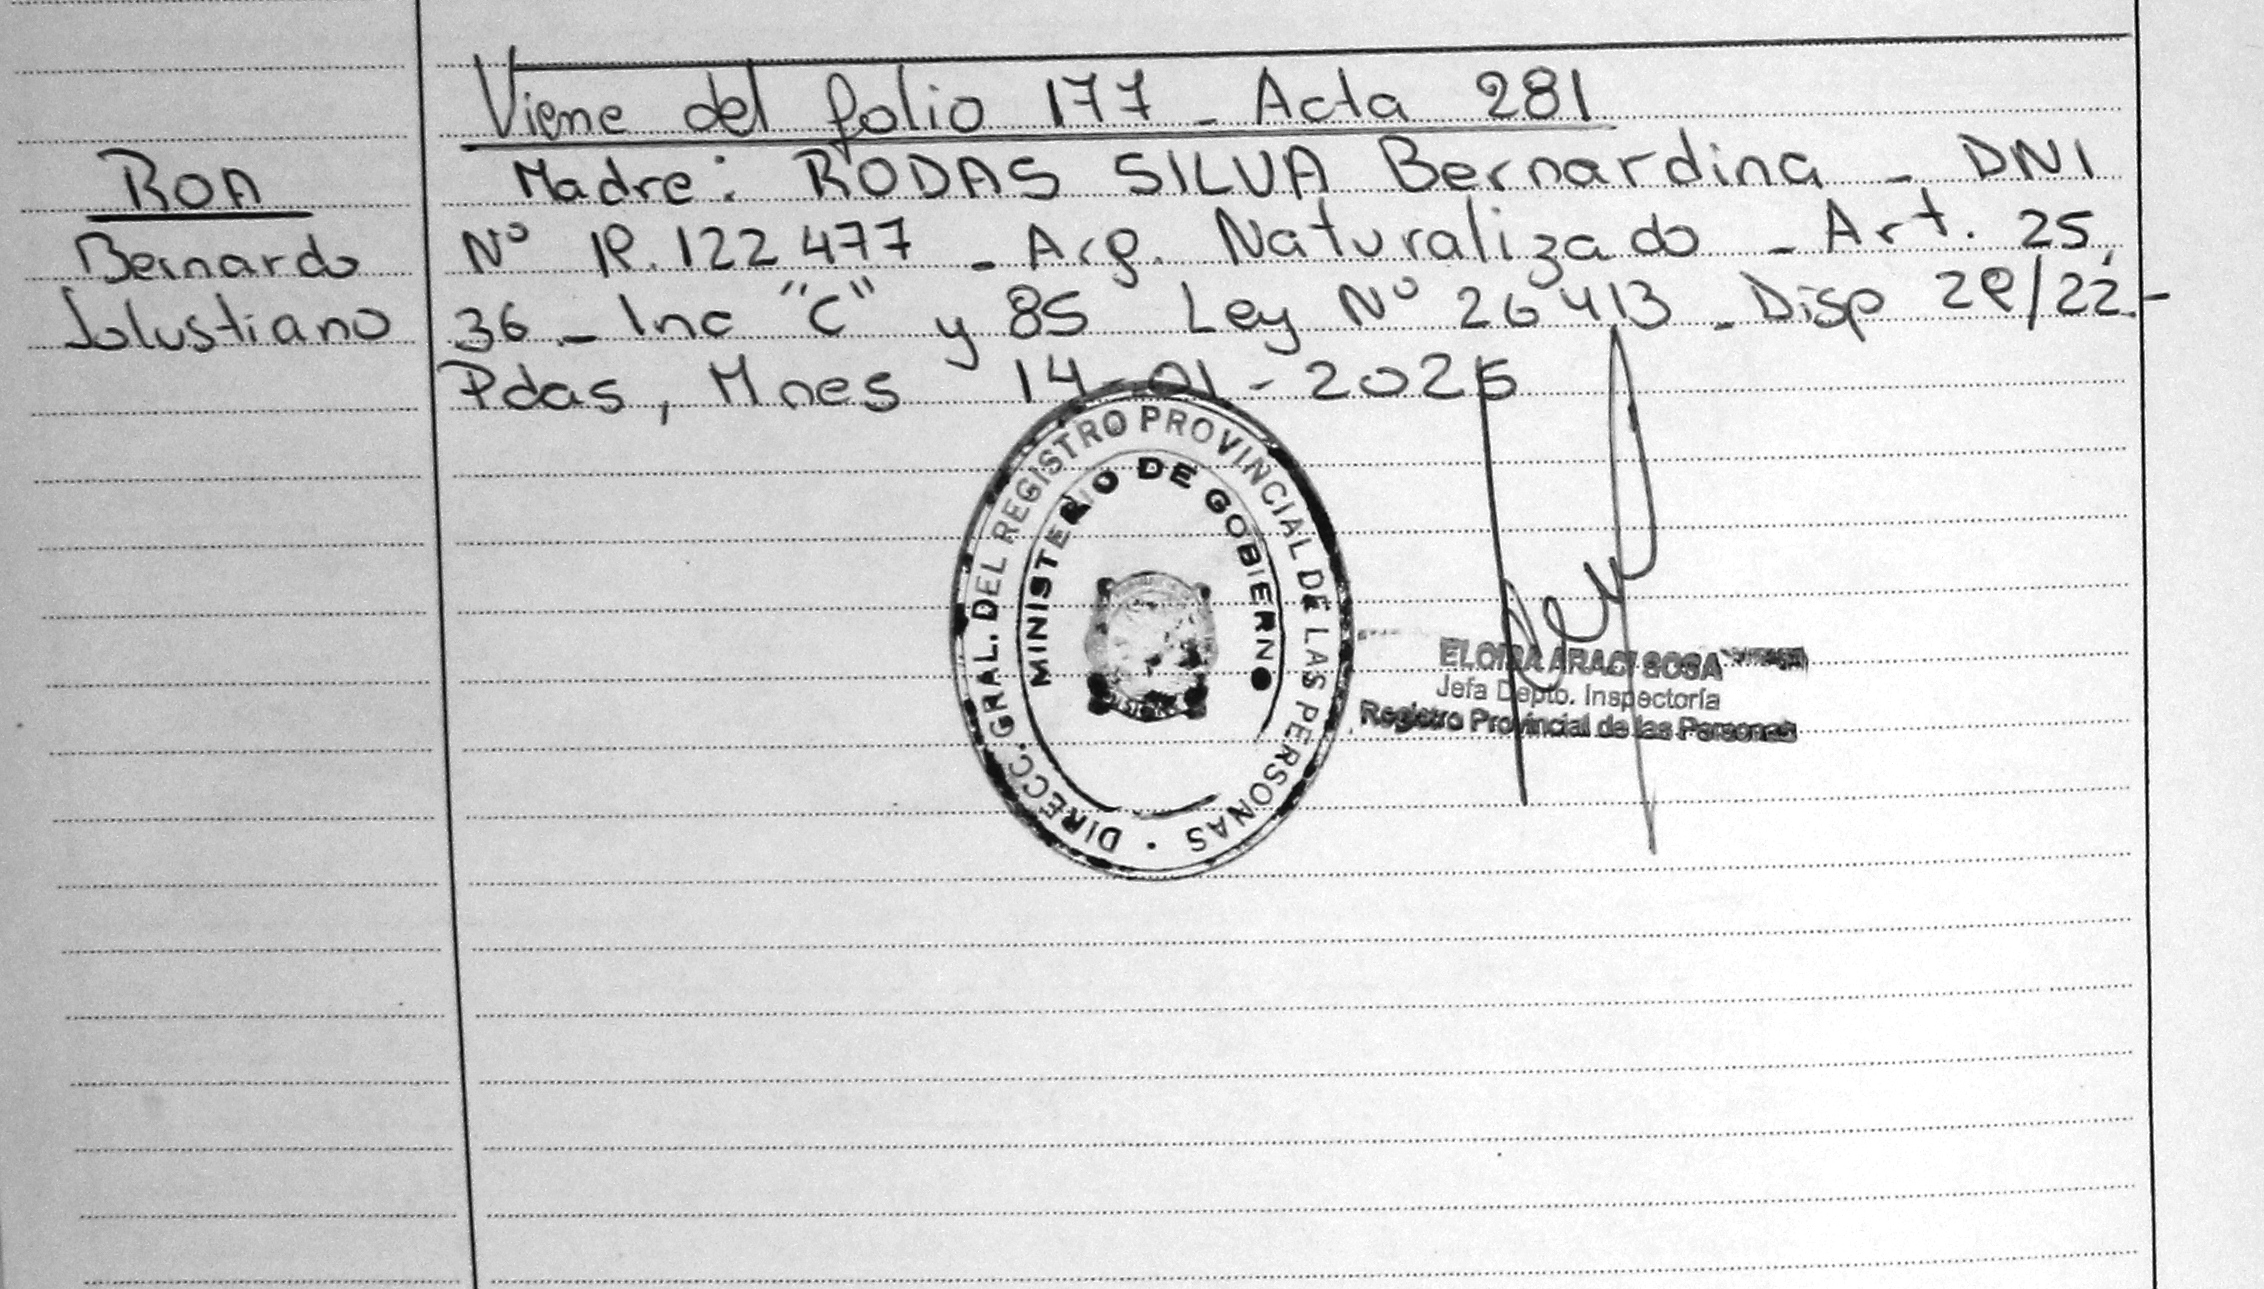 Viene del folio 177 - Acta 281
ROA
Bernardo
Salustiano
Madre: RODAS SILVA Bernardina - DNI
N° 18.122 477 - Arg. Naturalizado - Art. 25,
36 - Inc "C" y 85 Ley N° 26413 - Disp 28/22.-
Pdas, Mnes 14-01-2025
DIRECC. GRAL. DEL REGISTRO PROVINCIAL DE LAS PERSONAS
MINISTERIO DE GOBIERNO
ELOISA ARACI SOSA
Jefa Depto. Inspectoría
Registro Provincial de las Personas